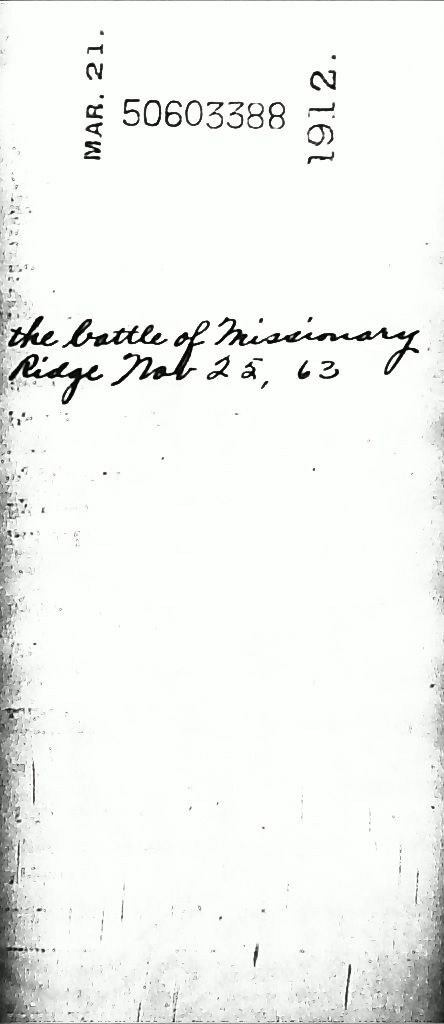 MAR. 21.
50603388
1912.
the battle of Missionary
Ridge Nov 25, 63